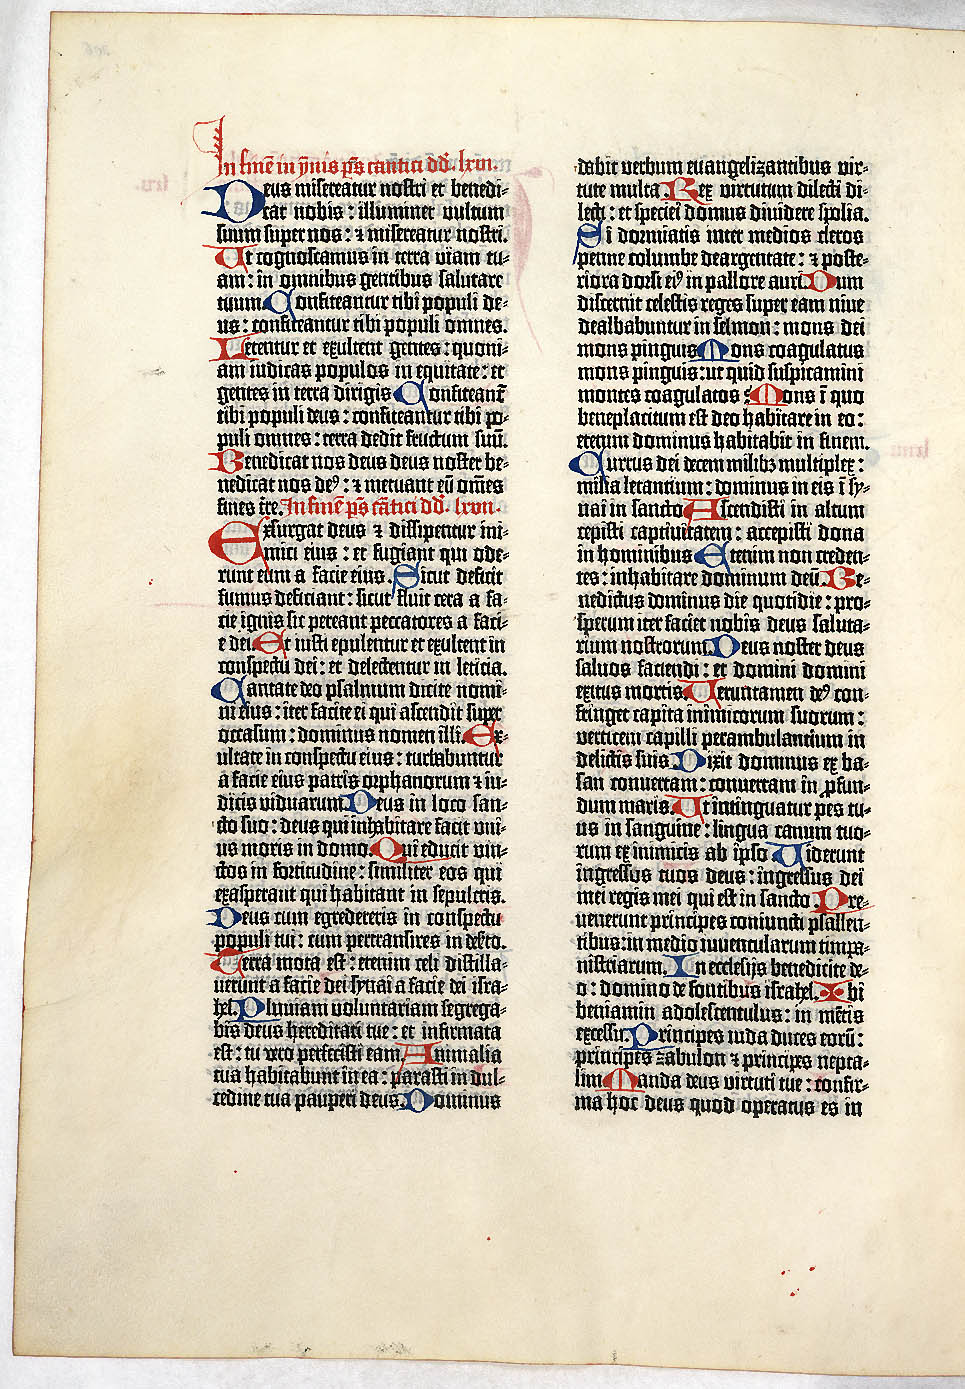 In finē in ymis ps̄ cantici dd̄. lxvi.
Deus misereatur nostri et benedi-
cat nobis : illuminet vultum
suum super nos : ⁊ misereatur nostri.
Ut cognoscamus in terra viam tu-
am : in omnibus gentibus salutare
tuum Confiteantur tibi populi de-
us : confiteantur tibi populi omnes.
Letentur et exultent gentes : quoni-
am iudicas populos in equitate : et
gentes in terra dirigis Confiteant᷑
tibi populi deus : confiteantur tibi po-
puli omnes : terra dedit fructum suū.
Benedicat nos deus deus noster be-
nedicat nos deꝰ : ⁊ metuant eū om̄es
fines t̄re. In finē ps̄ cātici dd̄. lxvii.
Exsurgat deus ⁊ dissipentur ini-
mici eius : et fugiant qui ode-
runt eum a facie eius. Sicut deficit
fumus deficiant : sicut fluit cera a fa-
cie ignis sic pereant peccatores a faci-
e dei Et iusti epulentur et exultent in
conspectu dei : et delectentur in leticia.
Cantate deo psalmum dicite nomi-
ni eius : iter facite ei qui ascendit super
occasum : dominus nomen illi. Ex-
ultate in conspectu eius : turbabuntur
a facie eius patris orphanorum ⁊ iu-
dicis viduarum. Deus in loco san-
cto suo : deus qui inhabitare facit uni-
us moris in domo Qui educit vin-
ctos in fortitudine : similiter eos qui
exasperant qui habitant in sepulcris.
Deus cum egredereris in conspectu
populi tui : cum pertransires in deserto.
Terra mota est : etenim celi distilla-
uerunt a facie dei synai a facie dei isra-
hel. Pluuiam voluntariam segrega-
bis deus hereditati tue : et infirmata
est : tu vero perfecisti eam. Animalia
tua habitabunt in ea : parasti in dul-
cedine tua pauperi deus. Dominus
dabit verbum euangelizantibus vir-
tute multa. Rex virtutum dilecti di-
lecti : et speciei domus diuidere spolia.
Si dormiatis inter medios cleros
penne columbe deargentate : ⁊ poste-
riora dorsi eiꝰ in pallore auri. Dum
discernit celestis reges super eam niue
dealbabuntur in selmon : mons dei
mons pinguis Mons coagulatus
mons pinguis : ut quid suspicamini
montes coagulatos : Mons ī quo
beneplacitum est deo habitare in eo :
etenim dominus habitabit in finem.
Currus dei decem milibꝫ multiplex :
milia letantium : dominus in eis ī sy-
nai in sancto Ascendisti in altum
cepisti captiuitatem : accepisti dona
in hominibus Etenim non creden-
tes : inhabitare dominum deū. Be-
nedictus dominus die quotidie : pro-
sperum iter faciet nobis deus saluta-
rium nostrorum. Deus noster deus
saluos faciendi : et domini domini
exitus mortis. Veruntamen deꝰ con-
fringet capita inimicorum suorum :
verticem capilli perambulantium in
delictis suis. Dixit dominus ex ba-
san conuertam : conuertam in ꝓfun-
dum maris. Ut intinguatur pes tu-
us in sanguine : lingua canum tuo-
rum ex inimicis ab ipso Viderunt
ingressus tuos deus : ingressus dei
mei regis mei qui est in sancto. Pre-
uenerunt principes coniuncti psallen-
tibus : in medio iuuencularum timpa-
nistriarum. In ecclesijs benedicite de-
o : domino de fontibus israhel. Ibi
beniamin adolescentulus : in mētis
excessu. Principes iuda duces eorū :
principes zabulon ⁊ principes nepta-
lim Manda deus virtuti tue : confir-
ma hoc deus quod operatus es in